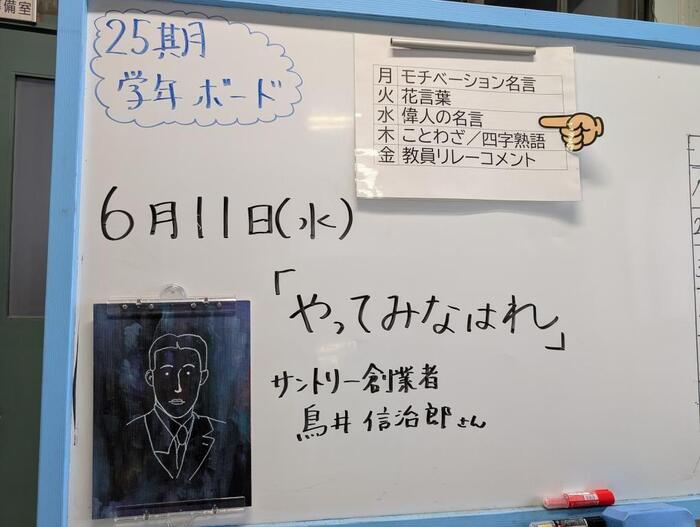 備室
25期
学年ボード
月 モチベーション名言
火 花言葉
水 偉人の名言
木 ことわざ／四字熟語
金 教員リレーコメント
6月11日(水)
「やってみなはれ」
サントリー創業者
鳥井信治郎さん